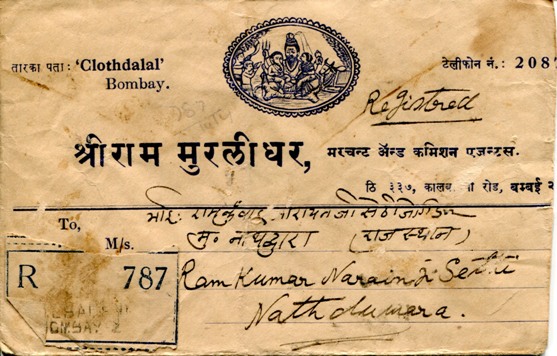 तारका पता : 'Clothdalal'
Bombay.
टेलीफोन नं.: 2087
Registered
श्रीराम मुरलीधर, मरचन्ट ॲन्ड कमिशन एजन्टस.
ठि ३३७, कालबा रोड, बम्बई
To,
M/s.
मु. नाथद्वारा (राजस्थान)
R 787
BOMBAY 2
Ram Kumar Narainji Sethi
Nathduwara.